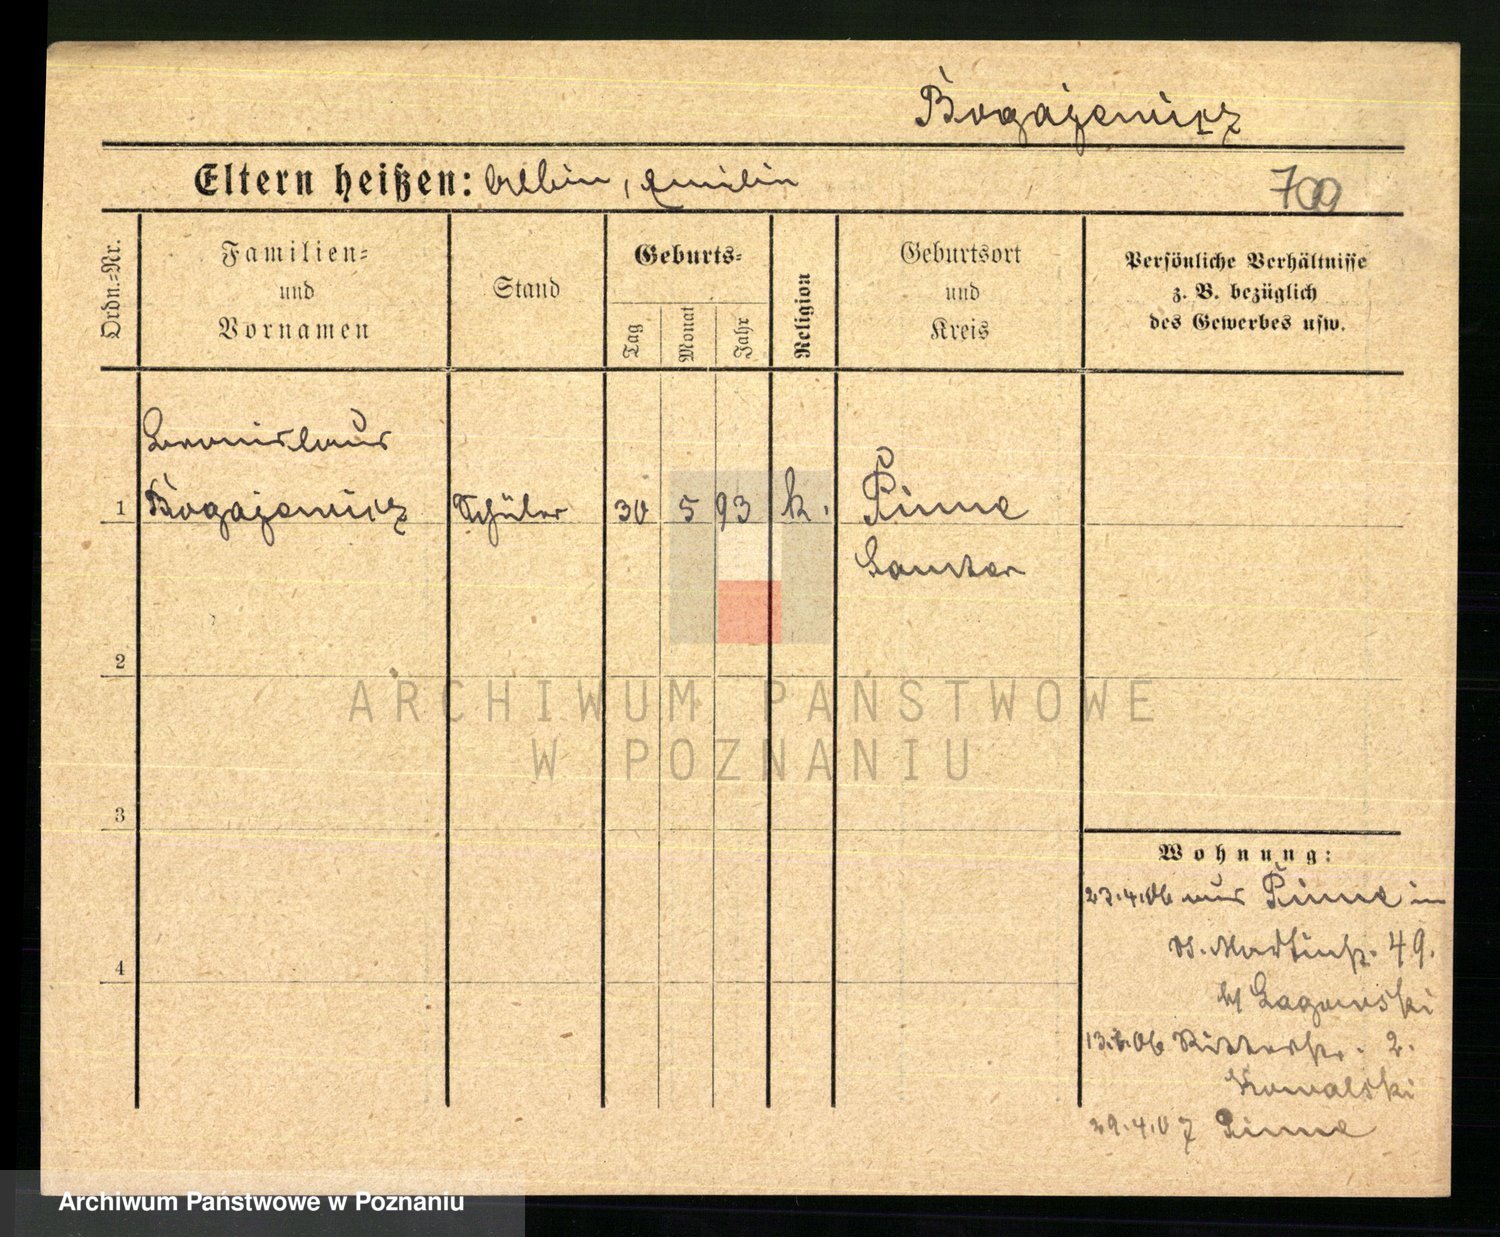 Bogajewicz
Eltern heißen: Albin, Emilie
709
Ordn.-Nr.
Familien-
und
Vornamen
Stand
Geburts-
Tag
Monat
Jahr
Religion
Geburtsort
und
Kreis
Persönliche Verhältnisse
z. B. bezüglich
des Gewerbes usw.
Bronislaus
1 Bogajewicz Schüler 30 5 93 k. Pinne
Samter
2
ARCHIWUM PAŃSTWOWE
W POZNANIU
3
4
Wohnung:
23.4.06 aus Pinne in
St. Martinstr. 49.
b/ Lagowski
06 Ritterstr. 2.
Kowalski
29.4.07 Pinne
Archiwum Państwowe w Poznaniu